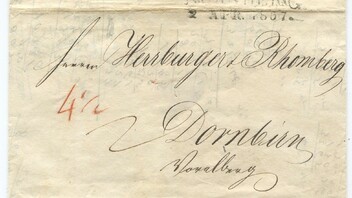 2 APR. 1867.
Herrn Herrburger & Rhomberg
4 1/2
Dornbirn
Vorarlberg